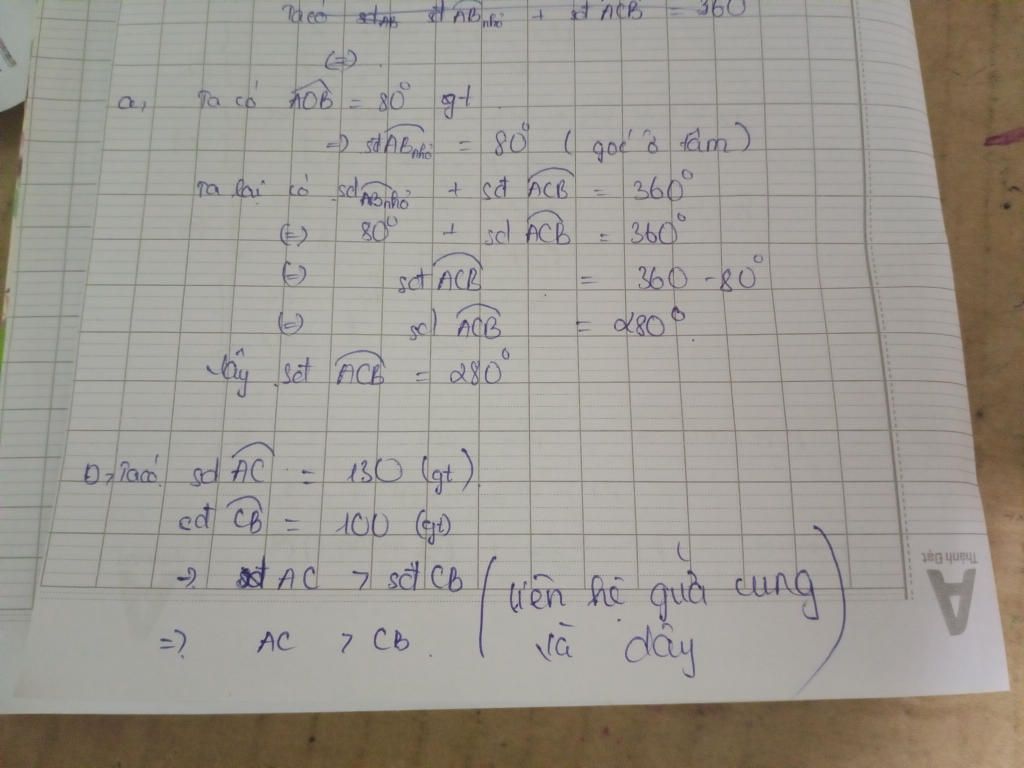 Ta có sđ AB sđ AB nhỏ + sđ ACB = 360
(=)
a, Ta có AOB = 80° gt
=) sđ AB nhỏ = 80° (góc ở tâm)
Ta lại có sđ AB nhỏ + sđ ACB = 360°
(=) 80° + sđ ACB = 360°
(=) sđ ACB = 360 - 80°
(=) sđ ACB = 280°
Vậy sđt ACB = 280°
D, Ta có sđ AC = 130 (gt)
sđ CB = 100 (gt)
=> sđt AC > sđt CB (liên hệ giữa cung
=> AC > CB. và dây)
Thành Đạt
A